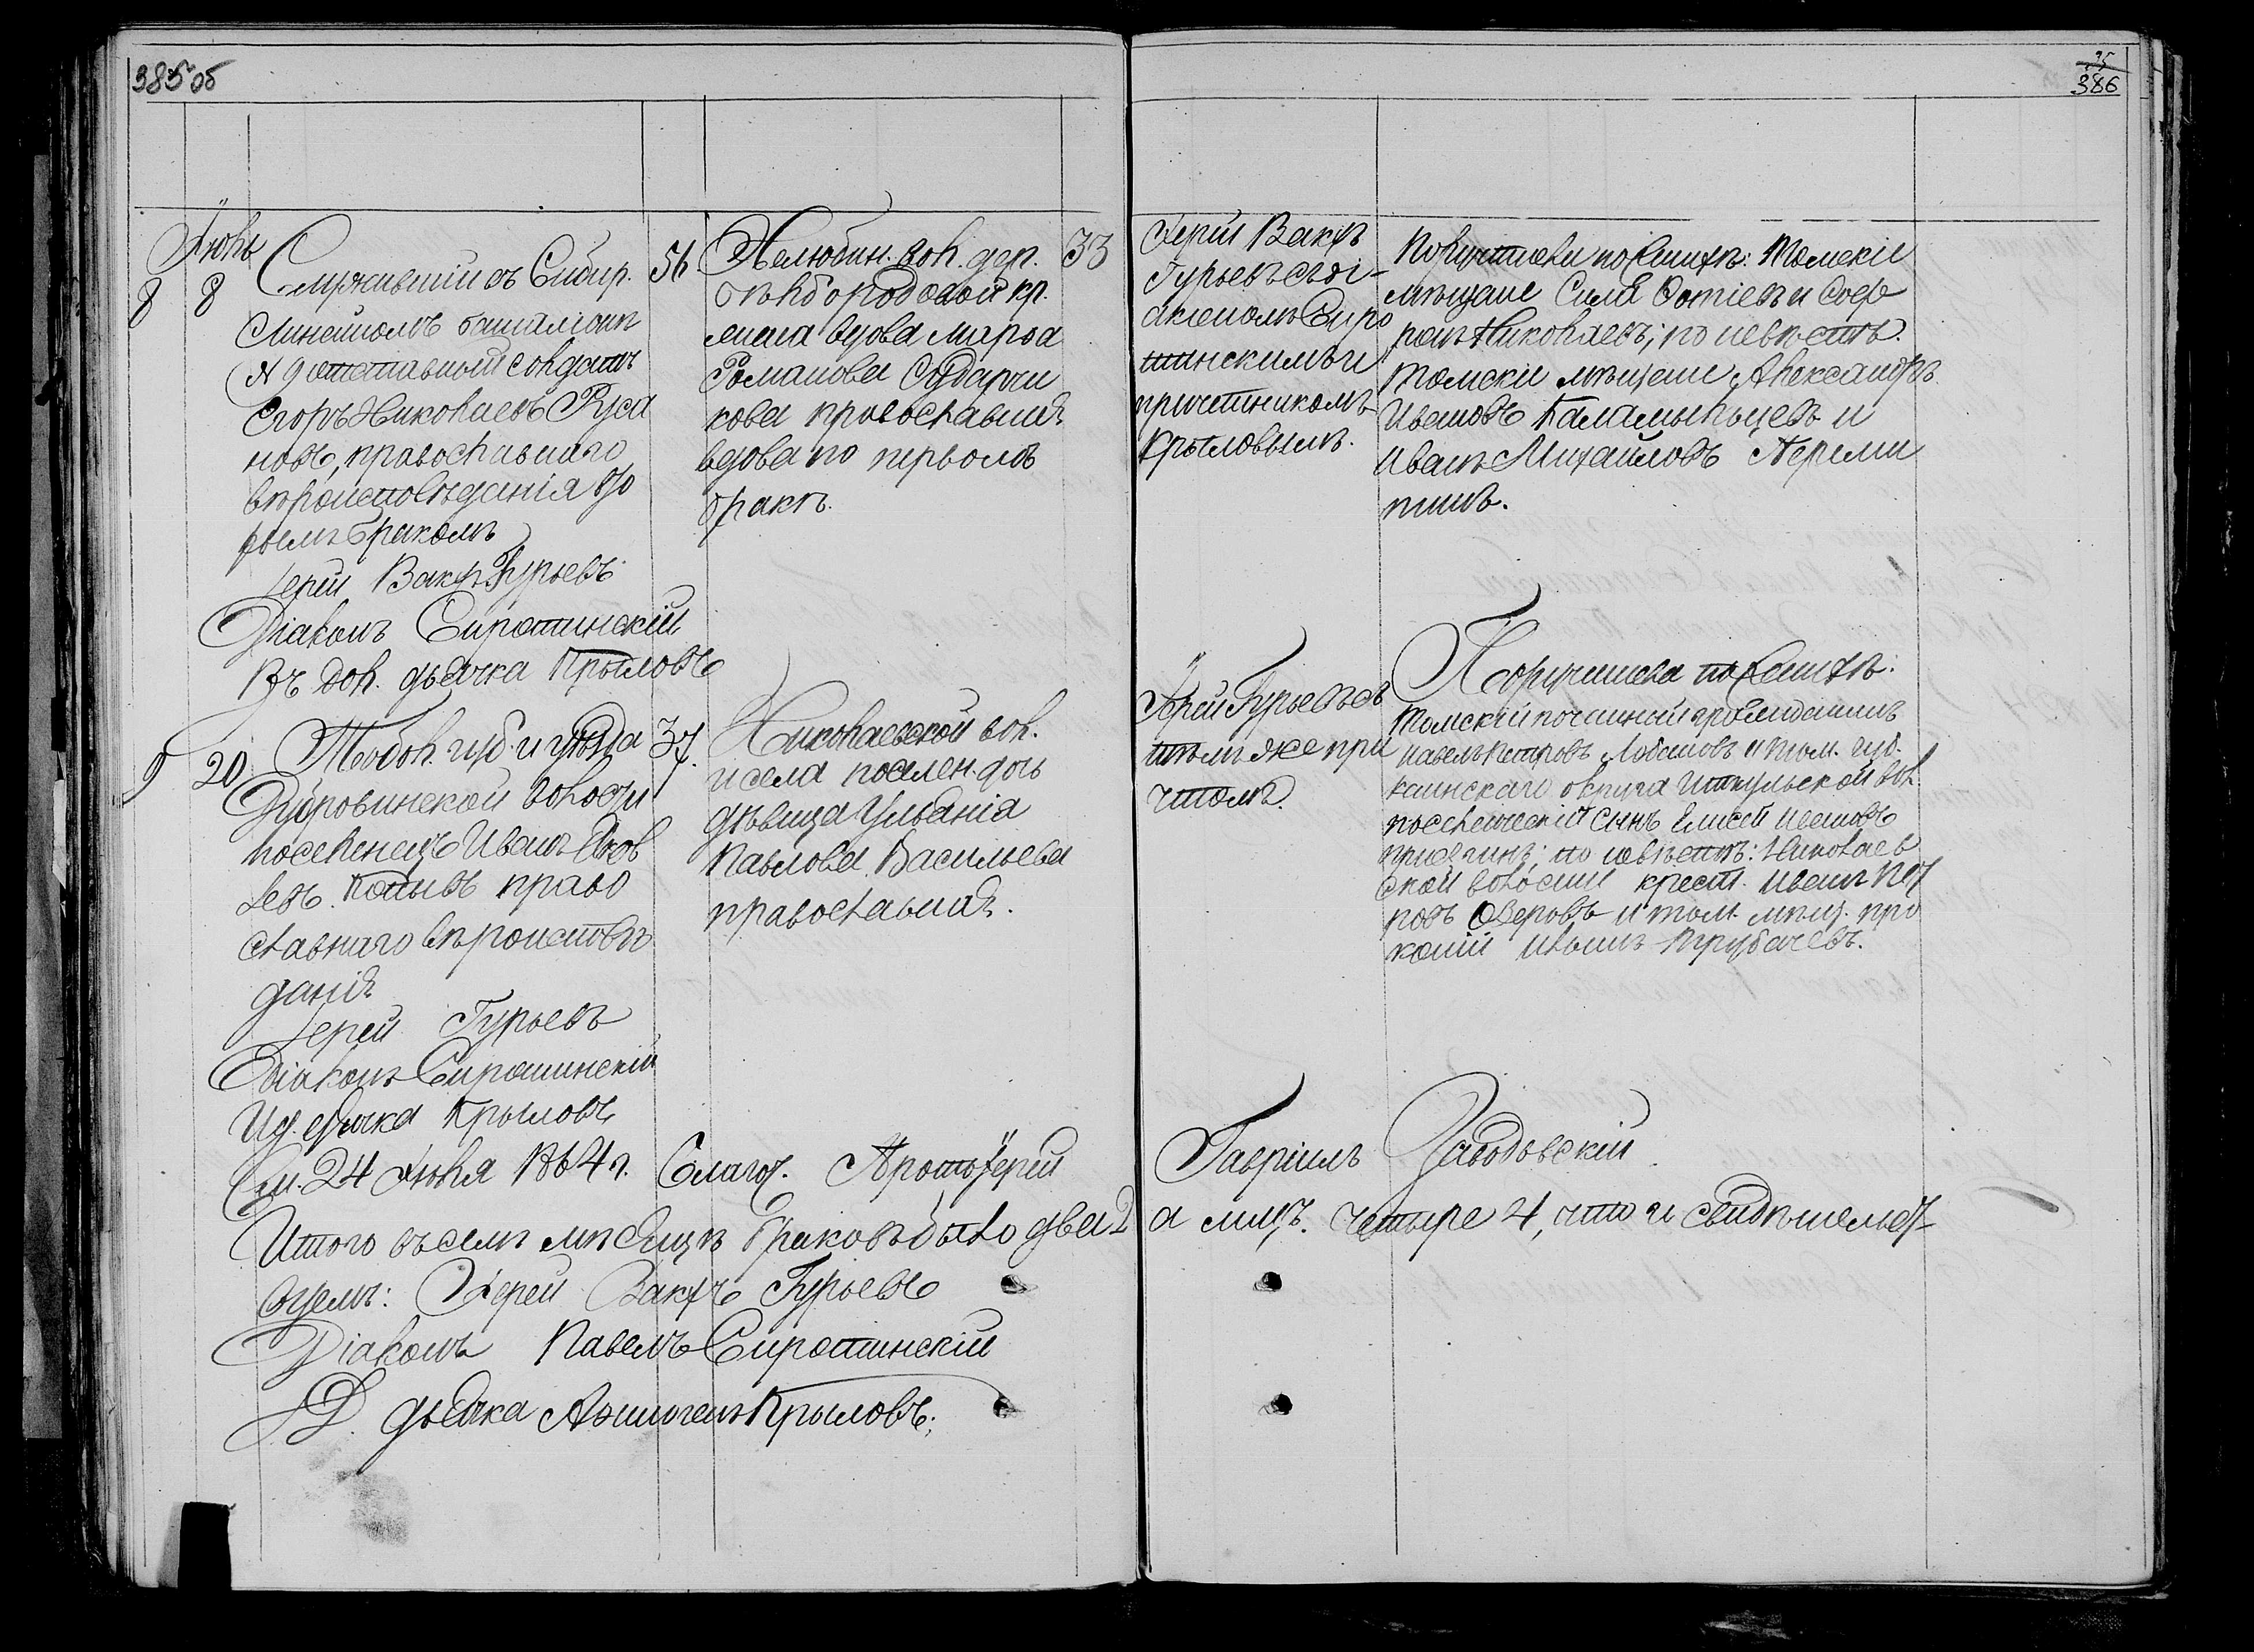 385 об
25
386
Іюнь
8
8
Служившій въ Сибир.
Линейномъ баталіонѣ
№ 9 отставной солдатъ
Егоръ Николаевъ Руса
новъ, православнаго
вѣроисповѣданія вто
рымъ бракомъ
Іерей Вакхъ Гурьевъ
Діаконъ Сиротинскій
Въ дол. дьячка Крыловъ
56.
Нелюбин. вол. дер.
Бѣлбородовой кр.
вдова Марѳа
Романова Сударчи
кова православная
вдова по первомъ
бракѣ.
33
Іерей Вакхъ
Гурьевъ съ ді-
акономъ Сиро
тинскимъ и
причетникомъ
Крыловымъ.
Поручители по женихѣ: Томскіе
мѣщане Сила Фотіевъ и Соф
ронъ Николаевъ; по невѣстѣ.
Томскіе мѣщане Александръ
Ивановъ Каламыльцевъ и
Иванъ Михайловъ
9
20
Тобол. губ. и уѣзда
Дубровинской волости
поселенецъ Иванъ Яков
левъ Копывъ право
славнаго вѣроисповѣ
данія
Іерей Гурьевъ
Діаконъ Сиротинскій
И. д. дьячка Крыловъ
37.
Николаевской вол.
и села поселен. дочь
дѣвица Ульянія
Павлова Васильева
православная.
Іерей Гурьевъ съ
тѣмъ же при
чтомъ.
Поручители по женихѣ:
Томскій почетный гражданинъ
Павелъ Петровъ Лобановъ и Том. губ.
Каинскаго округа Иткульской вол.
поселенческій сынъ Елисей Ивановъ
по невѣстѣ: Николаев
ской волости крест. Иванъ Пет
ровъ Озеровъ и том. мѣщ. Про
копій Ивановъ Трубачевъ.
См. 24 Іюля 1864 г. Благоч. Протоіерей Гавріилъ Заводовскій
Итого въ семъ мѣсяцѣ браковъ было два 2 а лицъ. четыре 4, что и свидѣтельст-
вуемъ: Іерей Вакхъ Гурьевъ
Діаконъ Павелъ Сиротинскій
Д. дьячка Аѳиногенъ Крыловъ.